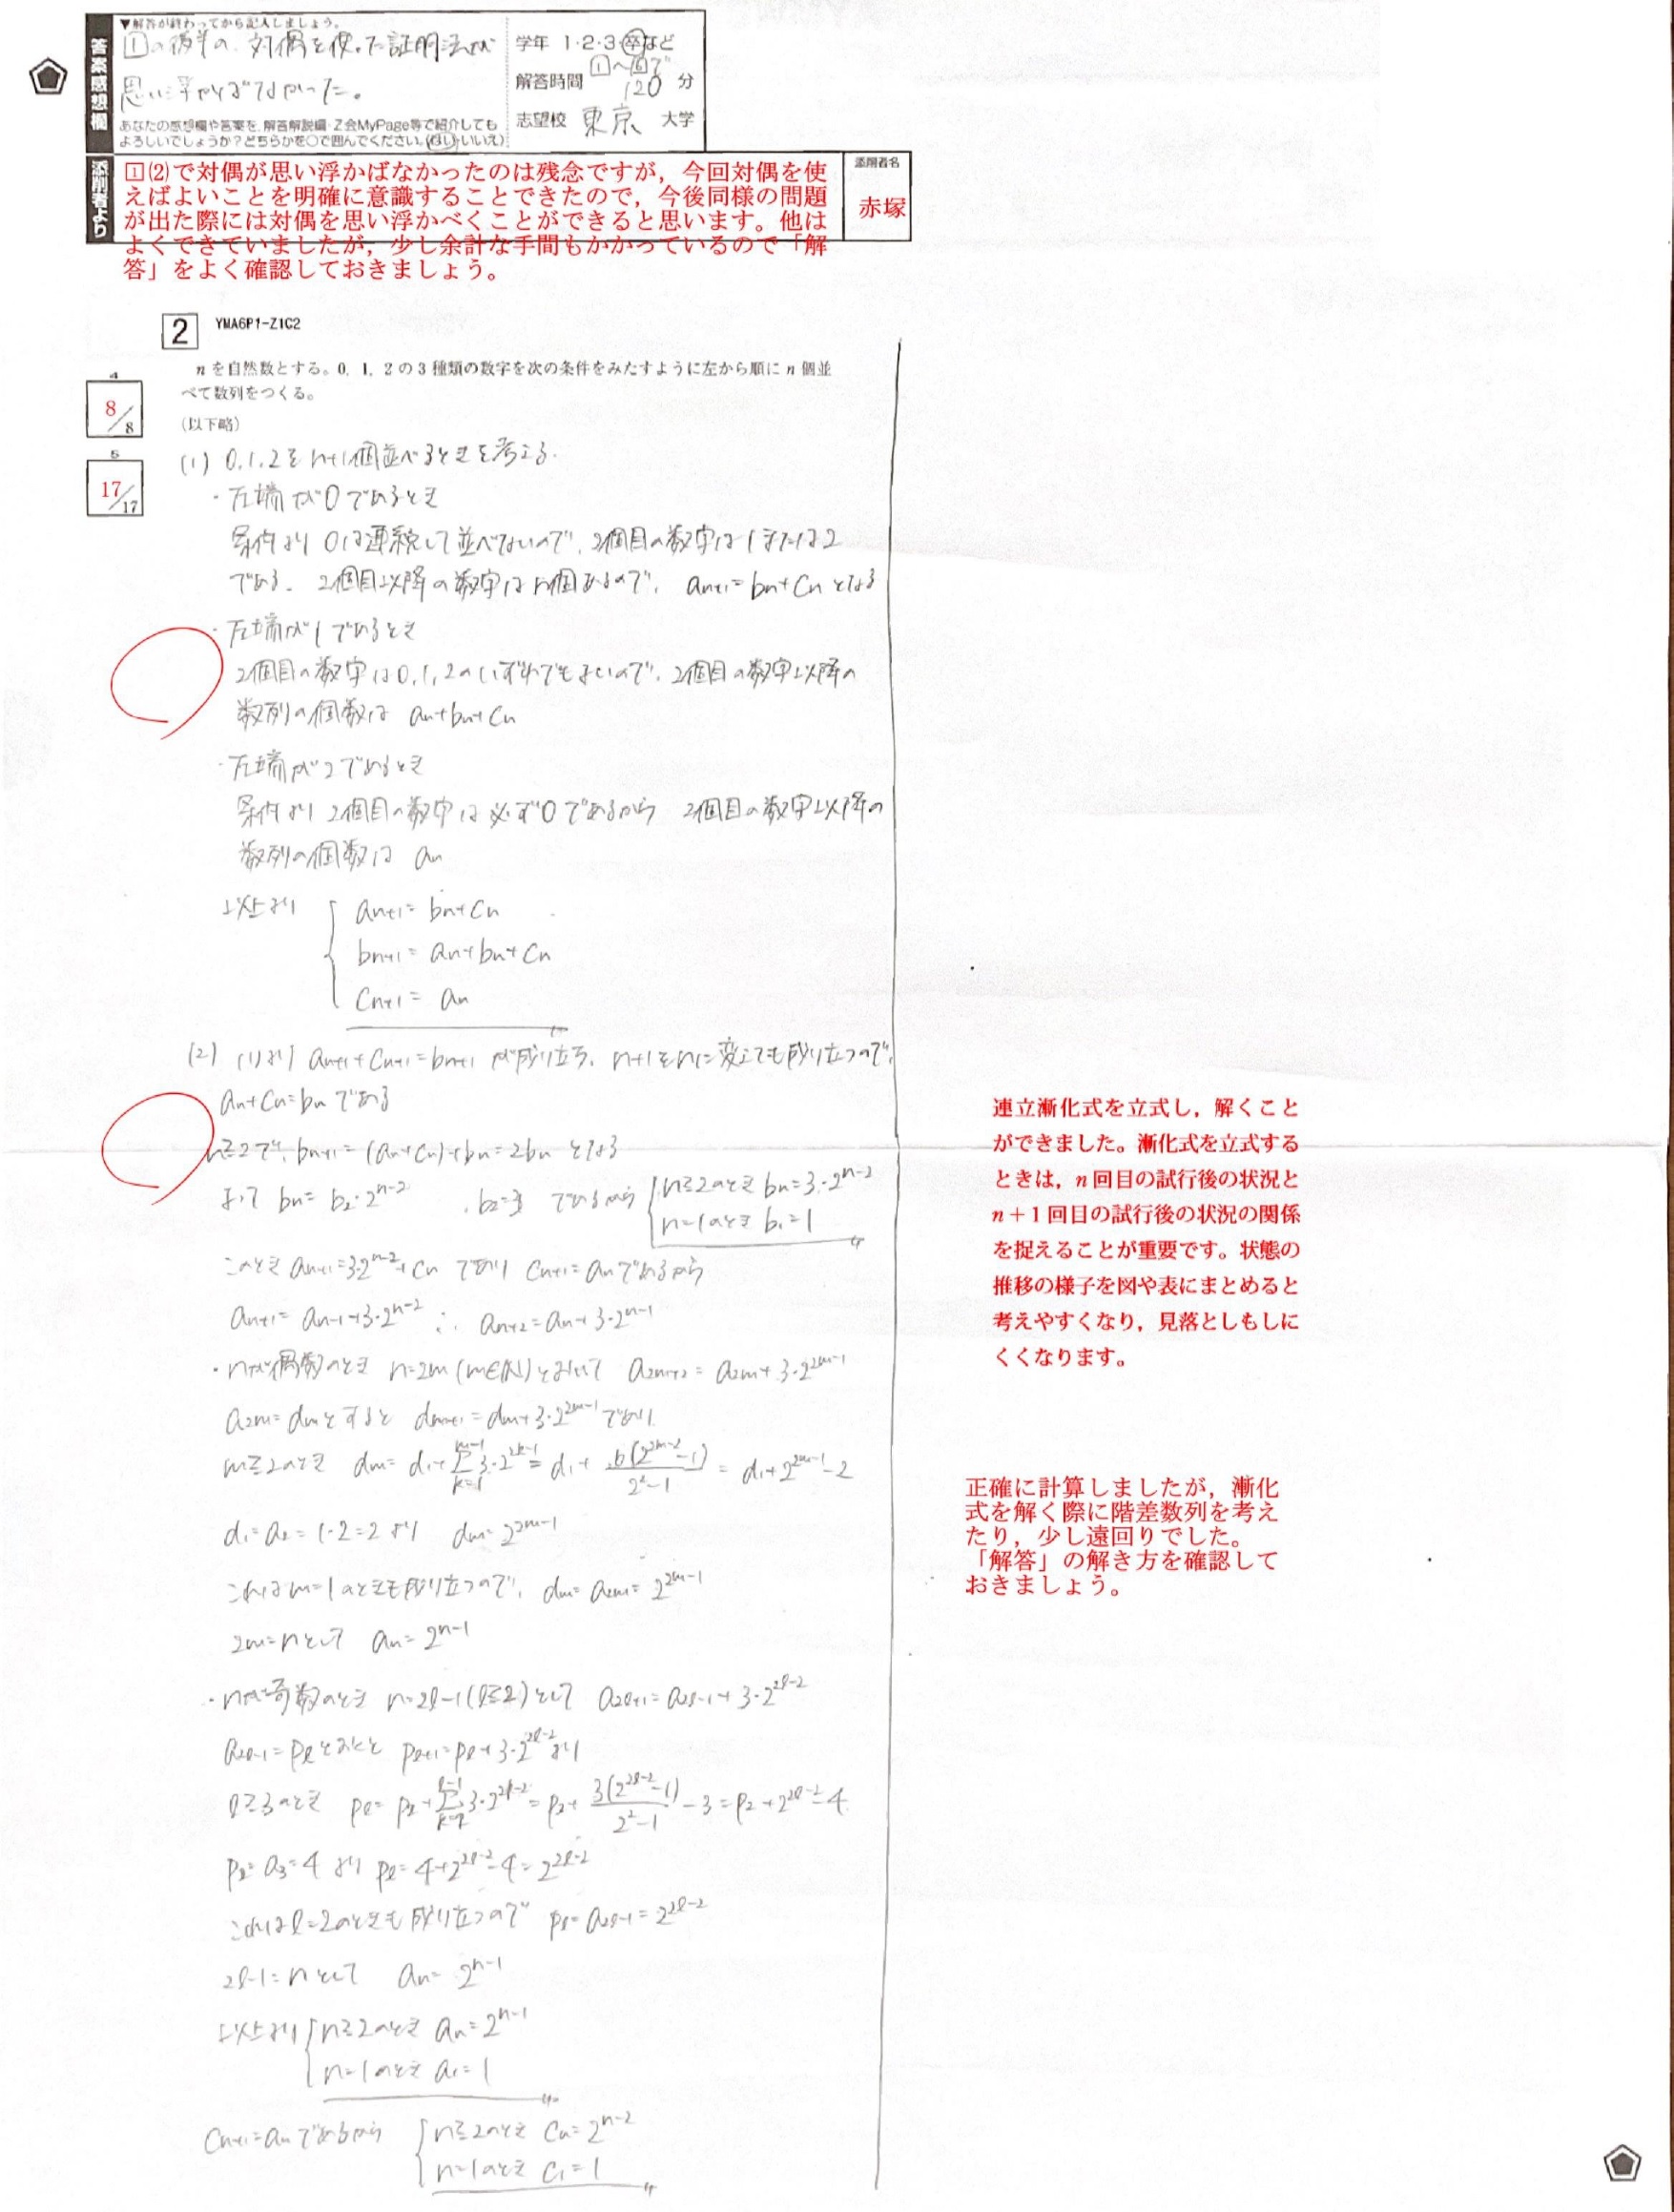 ▼解答が終わってから記入しましょう。
答案感想欄
1の後半の、対偶を使った証明法が
思い浮かばなかった。
あなたの感想欄や答案を、解答解説編・Z会MyPage等で紹介しても
よろしいでしょうか？どちらかを○で囲んでください。(はい・いいえ)
学年 1・2・3・卒など
1～6で
解答時間 120 分
志望校 東京 大学
添削者より
1(2)で対偶が思い浮かばなかったのは残念ですが，今回対偶を使
えばよいことを明確に意識することできたので，今後同様の問題
が出た際には対偶を思い浮かべくことができると思います。他は
よくできていましたが，少し余計な手間もかかっているので「解
答」をよく確認しておきましょう。
添削者名
赤塚
2 YMA6P1-Z1C2
nを自然数とする。0, 1, 2の3種類の数字を次の条件をみたすように左から順にn個並
べて数列をつくる。
(以下略)
4
8/8
5
17/17
(1) 0,1,2をn+1個並べるときを考える.
・左端が0であるとき
条件より0は連続して並べないので, 2個目の数字は1または2
である. 2個目以降の数字はn個あるので, an+1=bn+cnとなる
・左端が1であるとき
2個目の数字は0,1,2のいずれでもよいので, 2個目の数字以降の
数列の個数は an+bn+cn
・左端が2であるとき
条件より2個目の数字は必ず0であるから 2個目の数字以降の
数列の個数は an
以上より
an+1=bn+cn
bn+1=an+bn+cn
cn+1=an
(2) (1)より an+1+cn+1=bn+1 が成り立ち, n+1をnに変えても成り立つので,
an+cn=bnである
n≧2で, bn+1=(an+cn)+bn=2bn となる
よって bn=b2・2^{n-2} , b2=3 であるから n≧2のとき bn=3・2^{n-2}
n=1のとき b1=1
このとき an+1=3・2^{n-2}+cn であり cn+1=anであるから
an+1=an-1+3・2^{n-2} ∴ an+2=an+3・2^{n-1}
・nが偶数のとき n=2m (m∈N)とおいて a2m+2=a2m+3・2^{2m-1}
a2m=dmとすると dm+1=dm+3・2^{2m-1}であり
m≧2のとき dm=d1+Σ_{k=1}^{m-1}3・2^{2k-1}=d1+6(2^{2m-2}-1)/(2^2-1)=d1+2^{2m-1}-2
d1=a2=1・2=2より dm=2^{2m-1}
これはm=1のときも成り立つので, dm=a2m=2^{2m-1}
2m=nとして an=2^{n-1}
・nが奇数のとき n=2ℓ-1(ℓ≧2)として a2ℓ+1=a2ℓ-1+3・2^{2ℓ-2}
a2ℓ-1=pℓとおくと pℓ+1=pℓ+3・2^{2ℓ-2}より
ℓ≧3のとき pℓ=p2+Σ_{k=2}^{ℓ-1}3・2^{2k-2}=p2+3(2^{2ℓ-2}-1)/(2^2-1)-3=p2+2^{2ℓ-2}-4
p2=a3=4より pℓ=4+2^{2ℓ-2}-4=2^{2ℓ-2}
これはℓ=2のときも成り立つので pℓ=a2ℓ-1=2^{2ℓ-2}
2ℓ-1=nとして an=2^{n-1}
以上より n≧2のとき an=2^{n-1}
n=1のとき a1=1
cn+1=anであるから n≧2のとき cn=2^{n-2}
n=1のとき c1=1
連立漸化式を立式し，解くこと
ができました。漸化式を立式する
ときは，n回目の試行後の状況と
n＋1回目の試行後の状況の関係
を捉えることが重要です。状態の
推移の様子を図や表にまとめると
考えやすくなり，見落としもしに
くくなります。
正確に計算しましたが，漸化
式を解く際に階差数列を考え
たり，少し遠回りでした。
「解答」の解き方を確認して
おきましょう。